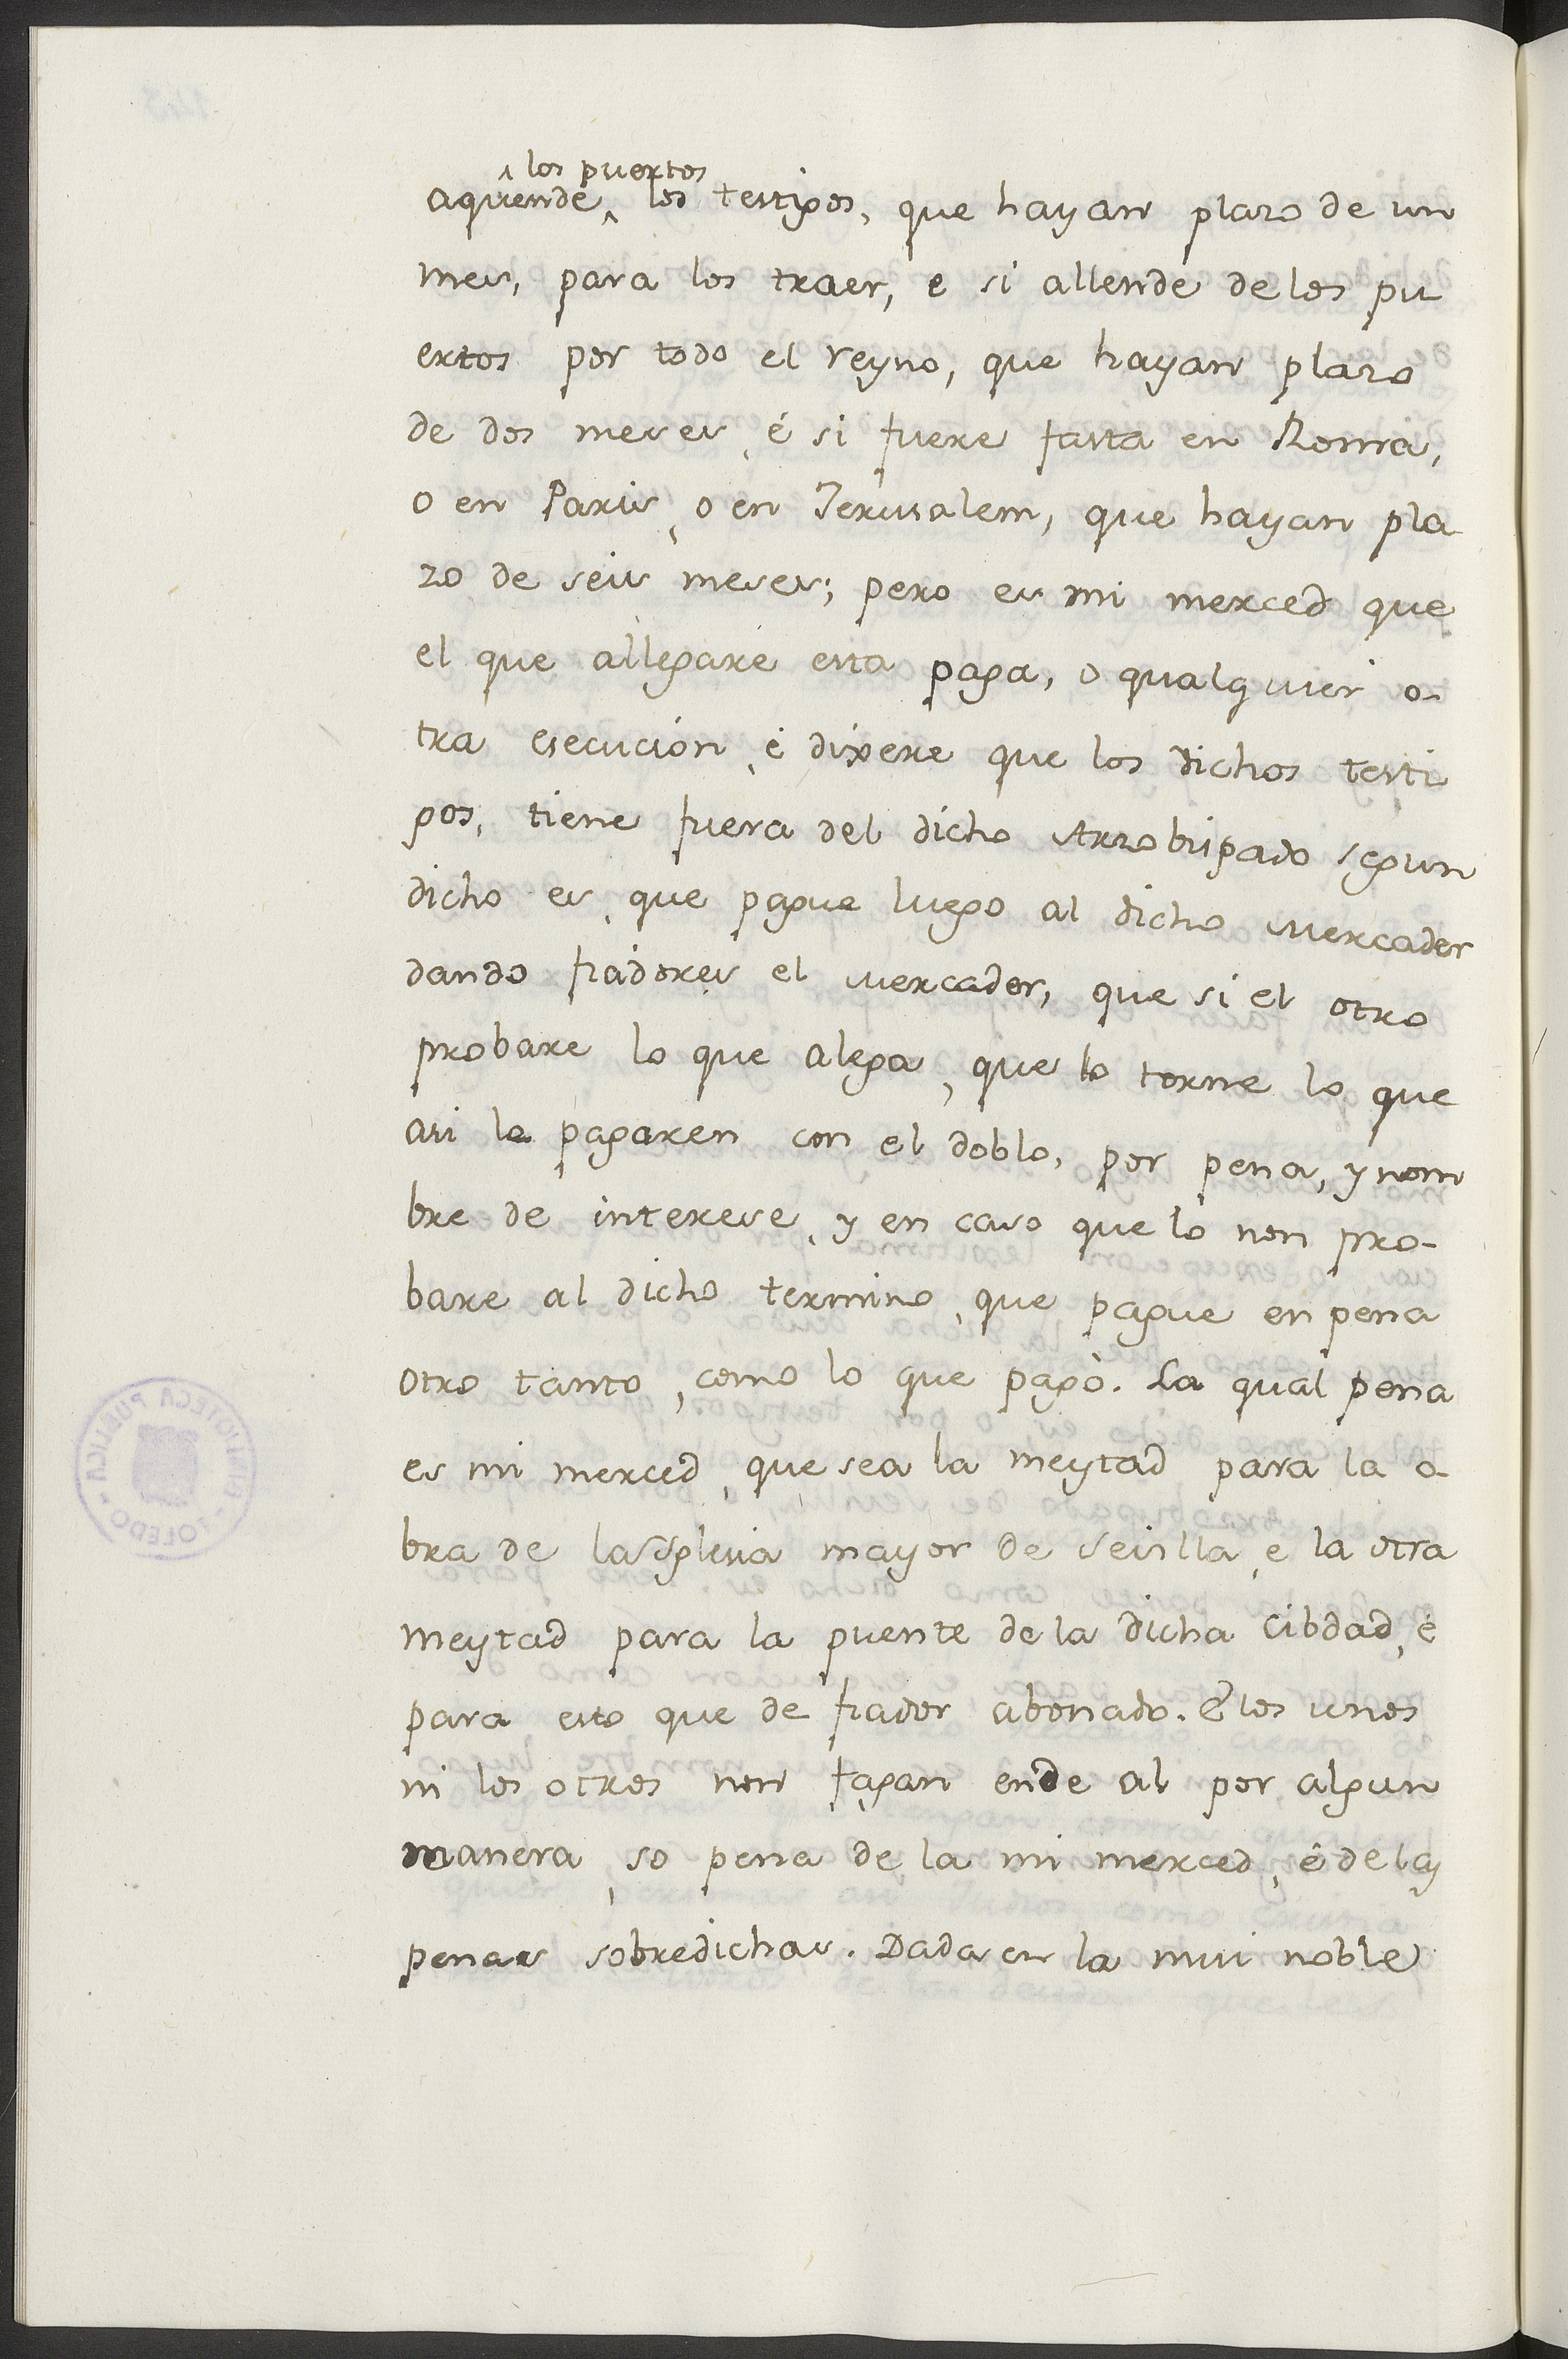 los puertos
aquende ^ los testigos, que hayan plazo de un
mes, para los traer, e si allende de los pu
ertos por todo el reyno, que hayan plazo
de dos meses, é si fuere fasta en Roma,
o en Paris, o en Jerusalem, que hayan pla
zo de seis meses; pero es mi merced que
el que allegare esta paga, o qualquier o-
tra esecución, é dixere que los dichos testi
gos, tiene fuera del dicho Arzobispado segun
dicho es, que pague luego al dicho mercader
dando fiadores el mercader, que si el otro
probare lo que alega, que lo torne lo que
asi le pagaren con el doblo, por pena, y nom
bre de interese, y en caso que lo non pro-
bare al dicho termino, que pague en pena
otro tanto, como lo que pagò. La qual pena
es mi merced, que sea la meytad para la o-
bra de la Yglesia mayor de Sevilla, e la otra
meytad para la puente de la dicha Cibdad, é
para esto que de fiador abonado. E los unos
ni los otros non fagan ende al por algun
manera, so pena de la mi merced, é de las
penas sobredichas. Dada en la mui noble
BIBLIOTECA PUBLICA - TOLEDO -